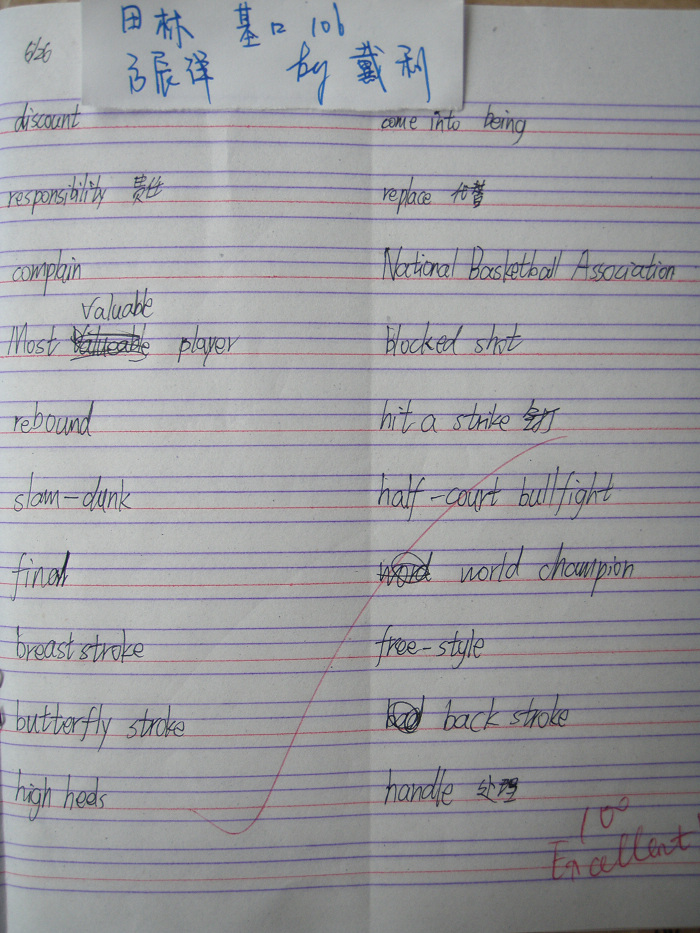 田林 基口 106
by 戴利
6/26
discount come into being
responsibility 责任 replace 代替
complain National Basketball Association
Valuable
Most player blocked shot
rebound hit a strike
slam-dunk half-court bullfight
final world champion
breast stroke free-style
butterfly stroke back stroke
high heels handle 处理
100
Excellent!